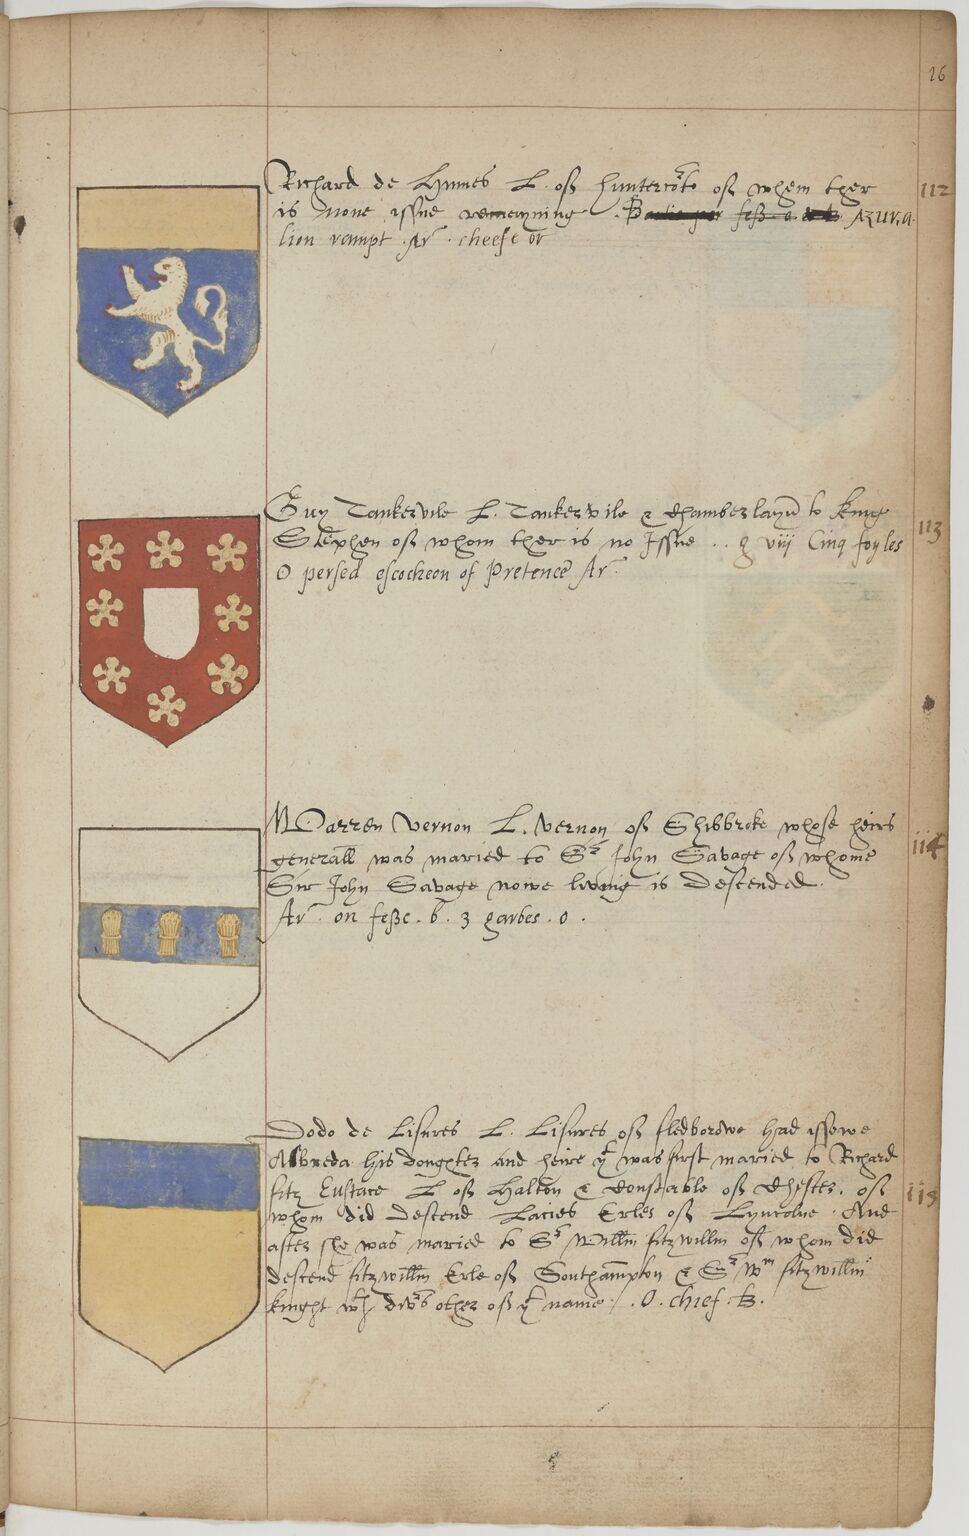 26
Richard de Humes L. off Huntercōte off whem ther 112
is none issue remayning. Partie per feß e Azur. a
lion rampt. Ar. cheefe or
Guy Tankervile L. Tankervile & Chamberlayn to King 113
Stephen off whom ther is no Issue .. g viij Cinq foyles
O persed escocheon of Pretence Ar.
Warren Vernon L. Vernon off Shibbroke whose heirs 114
generall was maried to Sr John Savage off whome
Sir John Savage nowe living is descended.
Ar. on feßc. b. 3 garbes. o.
Dodo de Lisures L. Lisures off fledborowe had issewe
Albreda his doughter and heire yt was first maried to Richard
fitz Eustace L off Halton & Constable off Chester. off 115
whom did descend Lacies Erles off Lyncolne. And
after she was maried to Sr Willm̄ fitzwillm off whom did
descend fitzwillm̄ Erle off Southampton & Sr Wm fitzwillm̄
knight wth divrs other off yt name. O. chief. B.